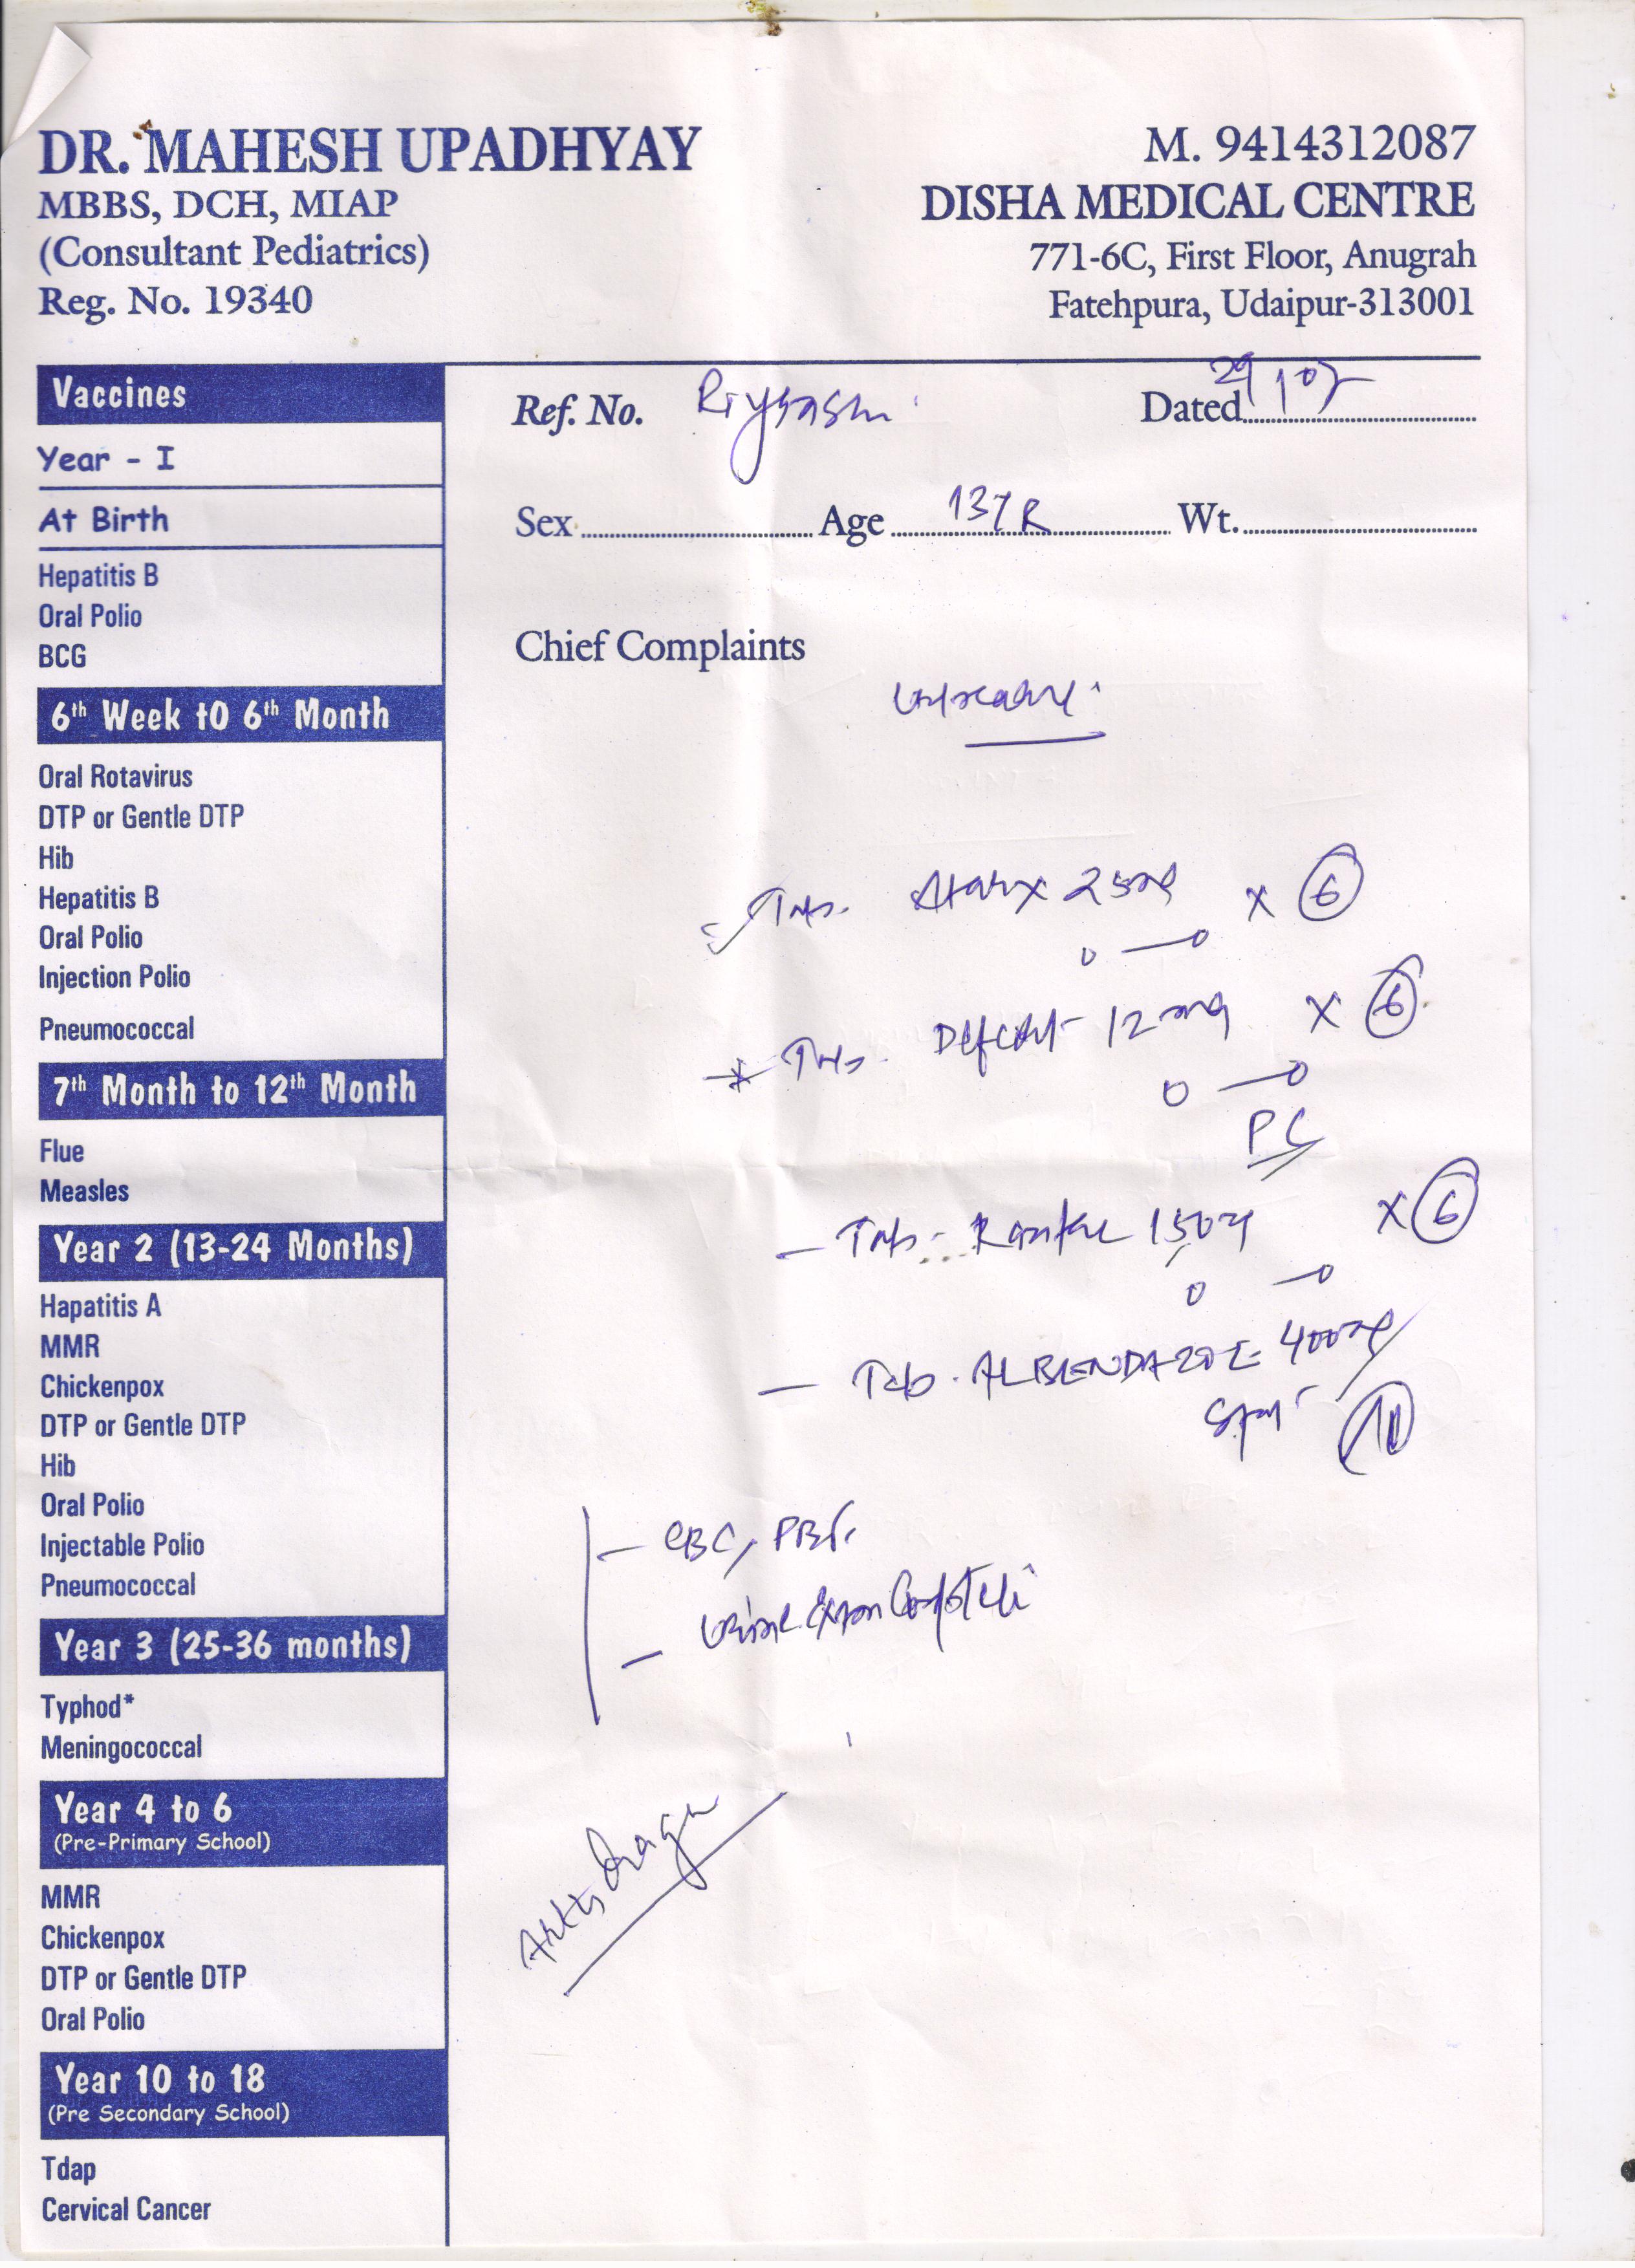 DR. MAHESH UPADHYAY
MBBS, DCH, MIAP
(Consultant Pediatrics)
Reg. No. 19340
M. 9414312087
DISHA MEDICAL CENTRE
771-6C, First Floor, Anugrah
Fatehpura, Udaipur-313001
Vaccines
Year - I
At Birth
Hepatitis B
Oral Polio
BCG
6th Week tO 6th Month
Oral Rotavirus
DTP or Gentle DTP
Hib
Hepatitis B
Oral Polio
Injection Polio
Pneumococcal
7th Month to 12th Month
Flue
Measles
Year 2 (13-24 Months)
Hapatitis A
MMR
Chickenpox
DTP or Gentle DTP
Hib
Oral Polio
Injectable Polio
Pneumococcal
Year 3 (25-36 months)
Typhod*
Meningococcal
Year 4 to 6
(Pre-Primary School)
MMR
Chickenpox
DTP or Gentle DTP
Oral Polio
Year 10 to 18
(Pre Secondary School)
Tdap
Cervical Cancer
Ref. No.
Dated
Sex Age 13YR Wt.
Chief Complaints
Tab. Atarx 25mg x 6
Tab. 12mg x 6
PC
Tab. 150mg x 6
Tab. ALBENDAZOLE 400mg
CBC, PBF
Urine Exam